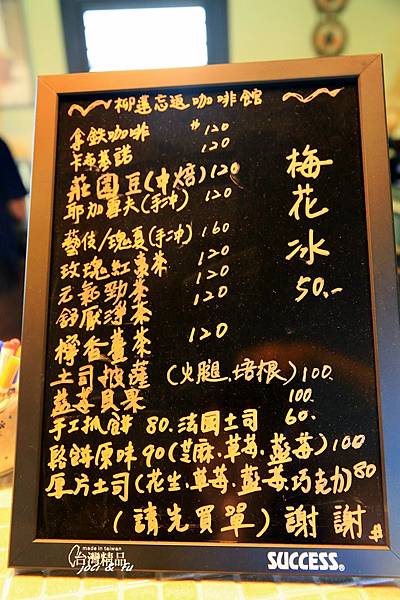 柳連忘返咖啡館
拿鉄咖啡 $120
卡布基諾 120
莊園豆(中焙)120
耶加雪夫(手冲) 120
藝伎/瑰夏(手冲) 160
玫瑰紅棗茶 120
元氣勁茶 120
舒壓淨茶 120
檸香薑茶 120
土司披薩 (火腿.培根) 100
藍莓貝果 100.
手工抓餅 80.法國土司 60.
鬆餅原味90(芝麻.草莓.藍莓)100
厚片土司(花生.草莓.藍莓.巧克力)80
(請先買單)謝謝
梅花冰
50.-
made in taiwan
台灣精品
SUCCESS®